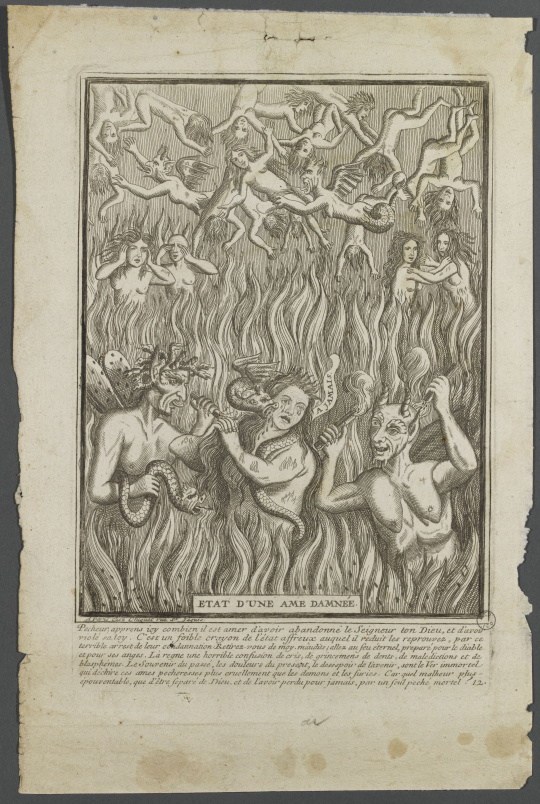 IAMAIS
ETAT D'UNE AME DAMNÉE.
A Paris Chez Chiquet rue St. Jaques
Pecheur, apprens icy combien il est amer d'avoir abandonné le Seigneur ton Dieu, et d'avoir
violé sa loy. C'est un foible crayon de l'état affreux auquel il reduit les reprouvez, par ce
terrible arrest de leur condamnation. Retirez vous de moy, maudits; allez au feu eternel, preparé pour le diable
et pour ses anges. La regne une horrible confusion de cris, de grincemens de dents, de maledictions et de
blasphemes. Le Souvenir du passé, les douleurs du present, le desespoir de l'avenir, sont le Ver immortel
qui dechire ces ames pecheresses plus cruellement que les demons et les furies. Car quel malheur plus
epouventable, que d'être separé de Dieu, et de l'avoir perdu pour jamais, par un seul peché mortel 12.